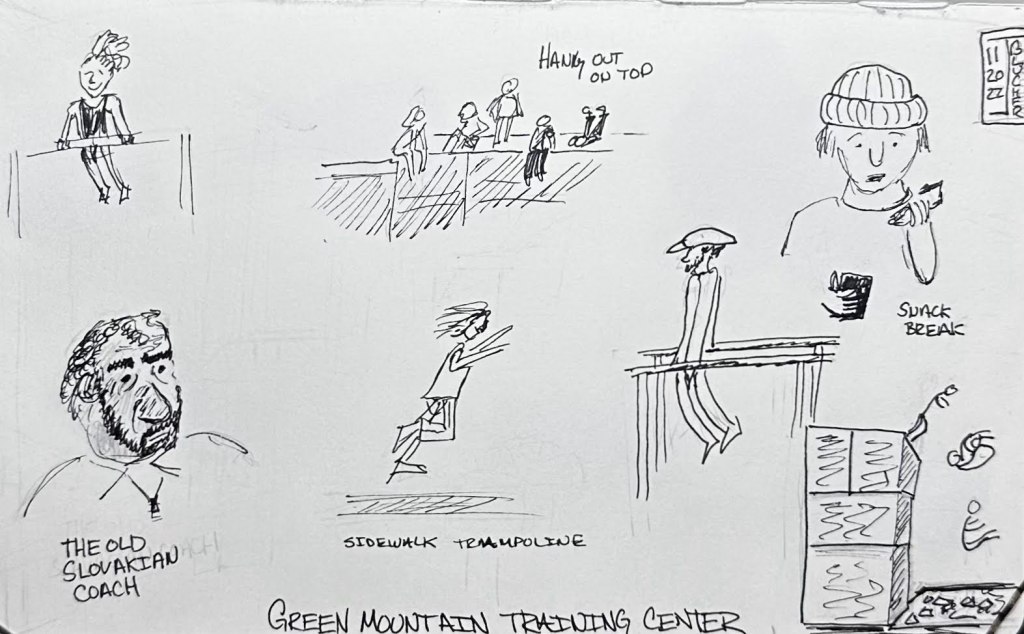 HANG OUT
ON TOP
11
20
22
SNACK
BREAK
THE OLD
SLOVAKIAN
COACH
SIDEWALK TRAMPOLINE
GREEN MOUNTAIN TRAINING CENTER